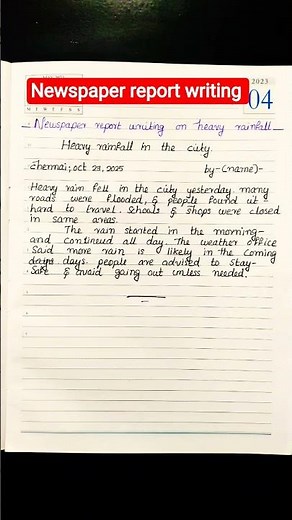 Newspaper report writing
2023
04
Newspaper report writing on heavy rainfall
Heavy rainfall in the city.
Chennai; oct 23, 2025 by-(name)-
Heavy rain fell in the city yesterday. many
roads were flooded, & people found it
hard to travel. Schools & shops were closed
in same areas.
The rain stanted in the morning-
and continued all day. The weather office
said more rain is likely in the coming
days. people are advised to stay-
safe & avoid going out unless needed.